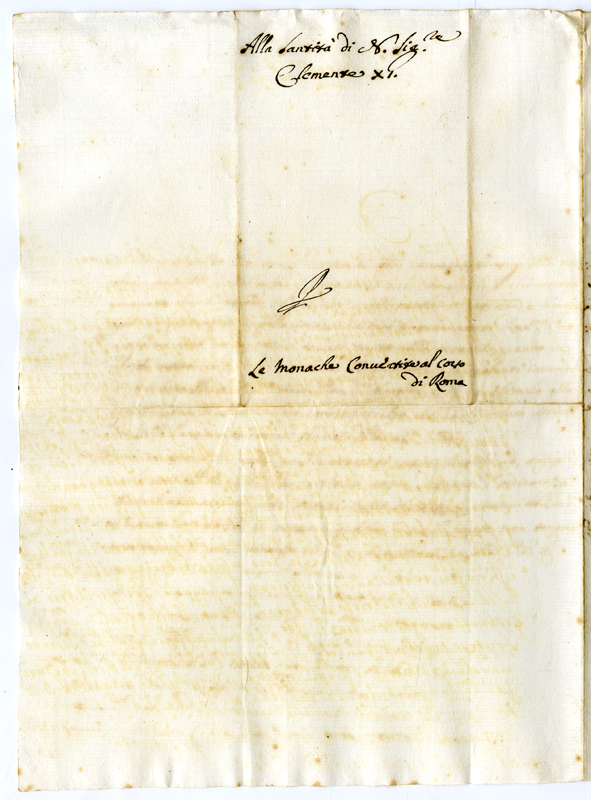 Alla Santità di N. Sig.re
Clemente XI.
Le Monache Convertite al Corso
di Roma